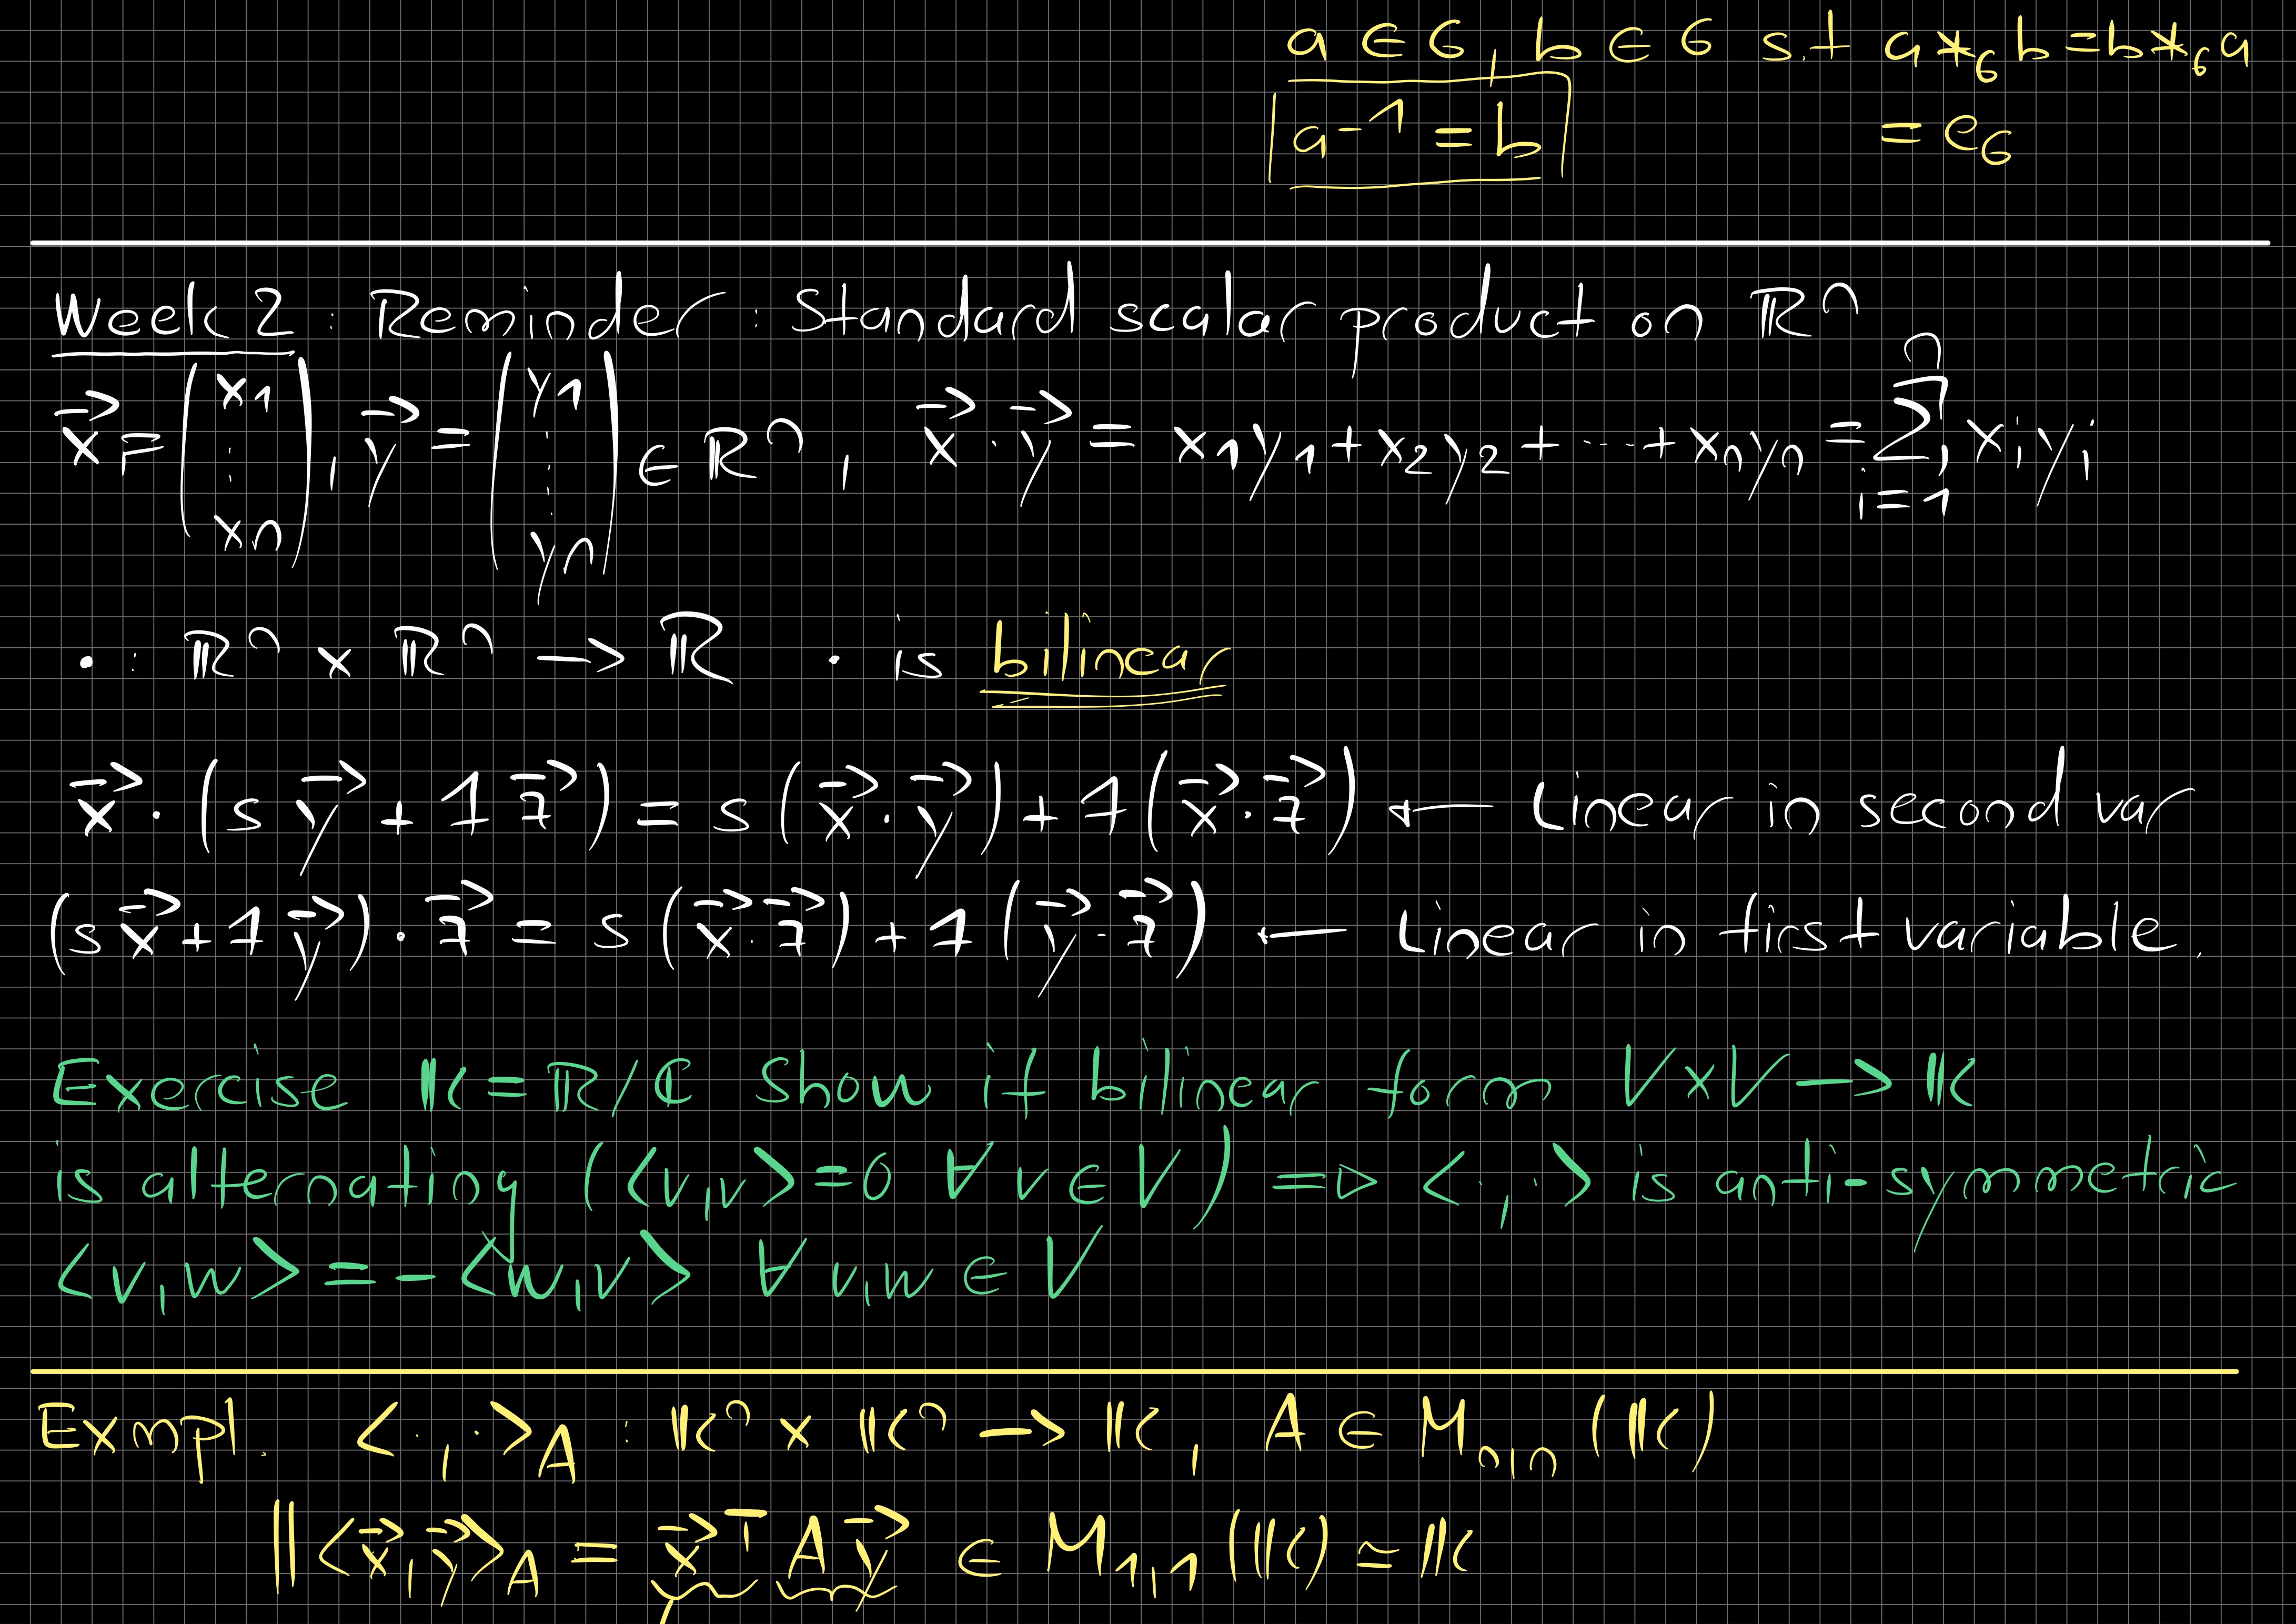 a ∈ G, b ∈ G s.t a *_G b = b *_G a
a^-1 = b = e_G
Week 2 : Reminder : Standard scalar product on ℝ^n
x⃗ = (x1 ⋮ xn), y⃗ = (y1 ⋮ yn) ∈ ℝ^n, x⃗ · y⃗ = x_1y_1 + x_2y_2 + ⋯ + x_ny_n = ∑_{i=1}^n x_iy_i
· : ℝ^n × ℝ^n -> ℝ · is bilinear
x⃗ · (s y⃗ + 1 z⃗) = s(x⃗ · y⃗) + 1(x⃗ · z⃗) ← Linear in second var
(s x⃗ + 1 y⃗) · z⃗ = s (x⃗ · z⃗) + 1 (y⃗ · z⃗) ← Linear in first variable.
Exercise 𝕂 = ℝ/ℂ Show if bilinear form V × V -> 𝕂
is alternating (<v,v> = 0 ∀ v ∈ V) => <·,·> is anti-symmetric
<v,w> = - <w,v> ∀ v,w ∈ V
Exmpl. <·,·>_A : 𝕂^n × 𝕂^n -> 𝕂, A ∈ M_{n,n} (𝕂)
|| <x⃗,y⃗>_A = x⃗^T A y⃗ ∈ M_{1,1} (𝕂) ≃ 𝕂